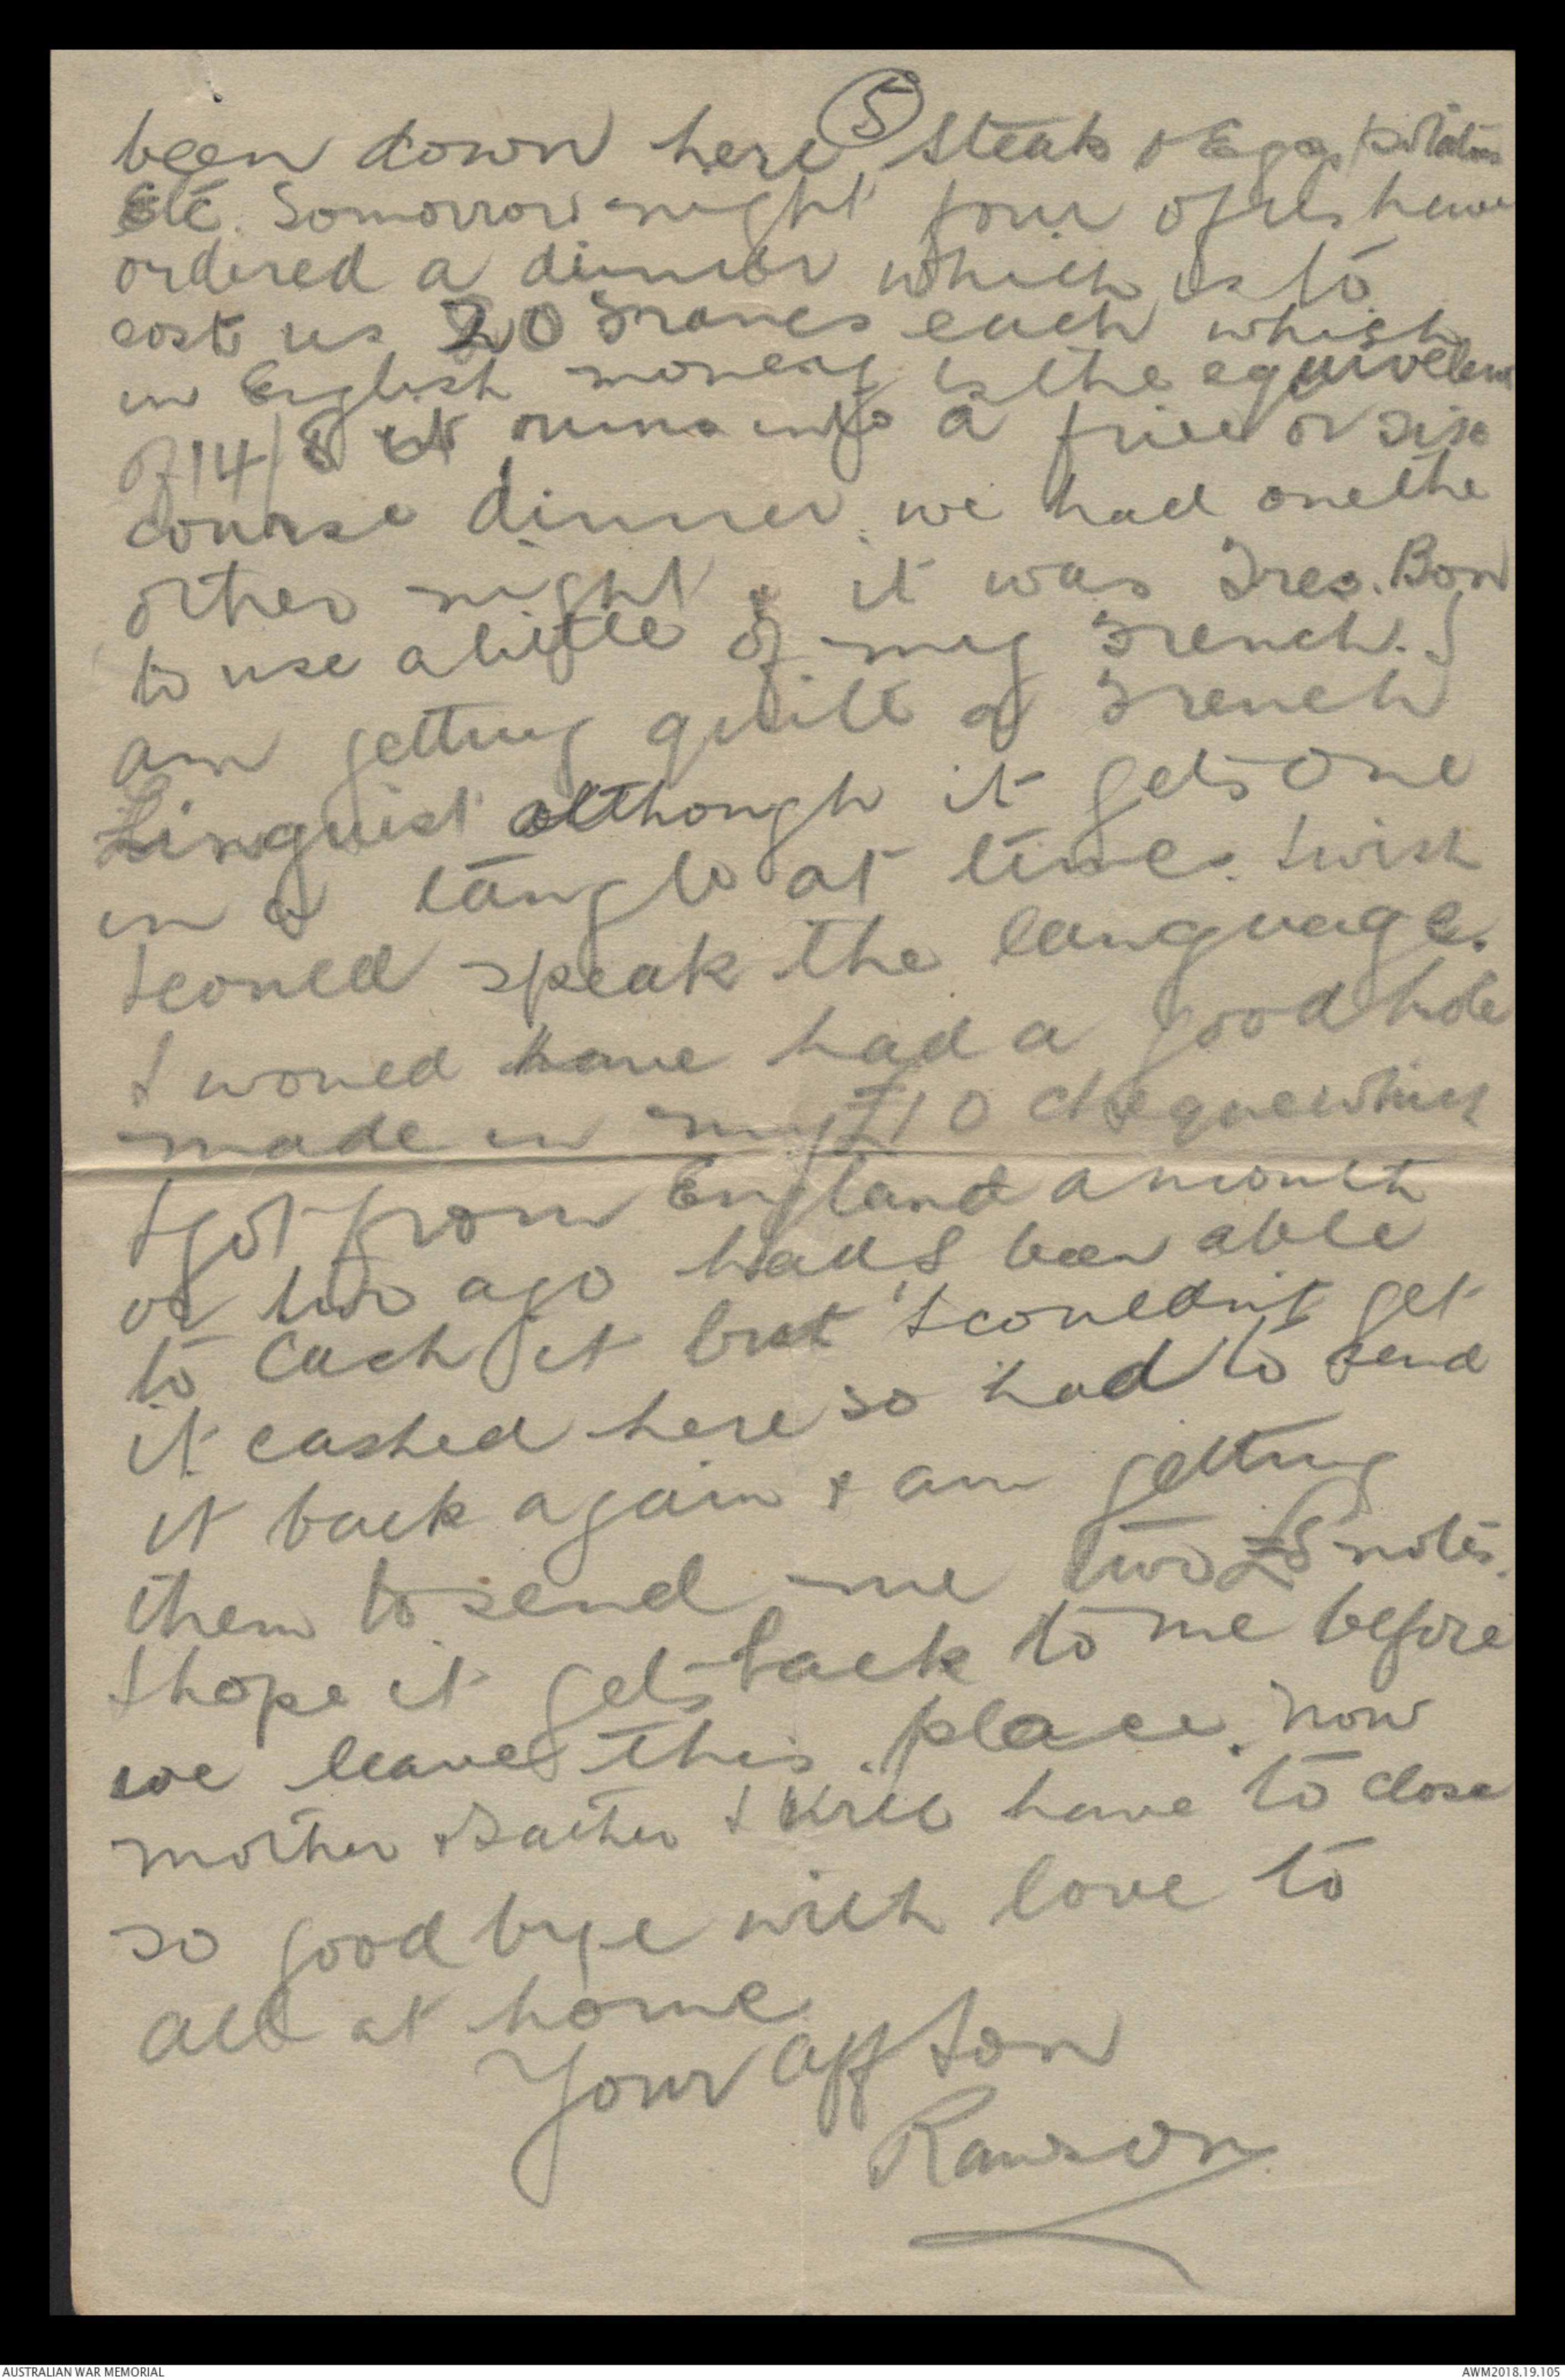 5
been down here Steak & Eggs, potatoes
Etc. Tomorrow night four of us have
ordered a dinner which is to
cost us 20 Francs each which
in English money is the equivelent
of 14/8 it runs into a five or six
course dinner, we had one the
other night & it was Tres. Bon
to use a little of my French. I
am getting quite a French
Linguist although it gets one
in a tangle at times. I wish
I could speak the language.
I would have had a good hole
made in my £10 cheque which
I got from England a month
or two ago had I been able
to Cash it but I couldn't get
it cashed here so had to send
it back again & am getting
them to send me two £5 notes.
I hope it gets back to me before
we leave this place. Now
Mother & Father I will have to close
so good bye with love to
all at home
Your aff Son
Rawson
AUSTRALIAN WAR MEMORIAL
AWM2018.19.105